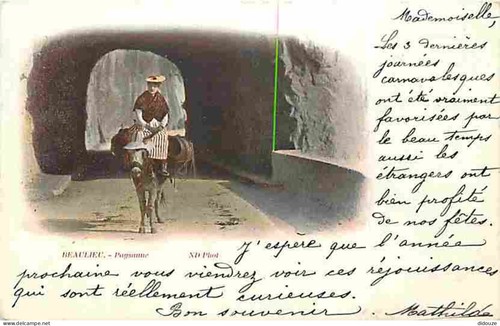 Mademoiselle,
Les 3 dernières
journées
carnavalesques
ont été vraiment
favorisées par
le beau temps
aussi les
étrangers ont
bien profité
de nos fêtes.
BEAULIEU. - Paysanne ND Phot
J'espère que l'année
prochaine vous viendrez voir ces réjouissances
qui sont réellement curieuses.
Bon souvenir. Mathilde
https://www.delcampe.net didouze